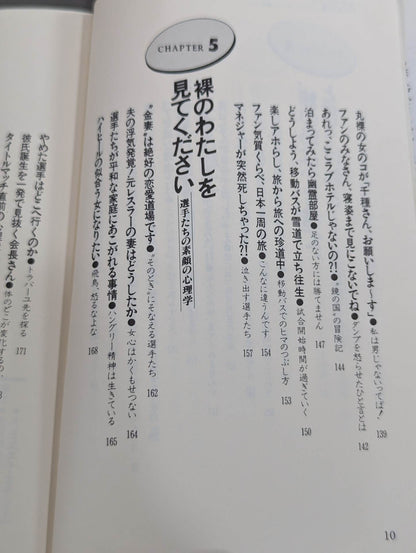 CHAPTER 5
裸のわたしを
見てください
選手たちの素顔の心理学
丸裸の女のコが、「千種さん、お願いしま〜す」●私は男じゃないってば! 139
ファンのみなさん、寝姿まで見にこないでね●ダンプを怒らせたひと言とは 142
あれっ、ここラブホテルじゃないの?!●"鏡の国"の冒険記 144
泊まってみたら幽霊部屋●足のない方には勝てません 147
どうしよう、移動バスが雪道で立ち往生●試合開始時間が過ぎていく 150
楽しアホらし、旅から旅への珍道中●移動バスでのヒマのつぶし方 153
ファン気質くらべ、日本一周の旅●こんなに違うんです 154
マネジャーが突然死しちゃった?!●泣き出す選手たち 157
"金妻"は絶好の恋愛道場です●"そのとき"にそなえる選手たち 162
夫の浮気発覚!元レスラーの妻はどうしたか●女心はかくもせつない 164
選手たちが平和な家庭にあこがれる事情●ハングリー精神は生きている 165
ハイヒールの似合う女になりたい●飛鳥、怒るなよな 168
やめた選手はどこへ行くのか●トラバーユ先を探る 171
彼氏誕生を一発で見抜く会長さん●体のどこが変化するのか
タイトルマッチ直前の心理
10